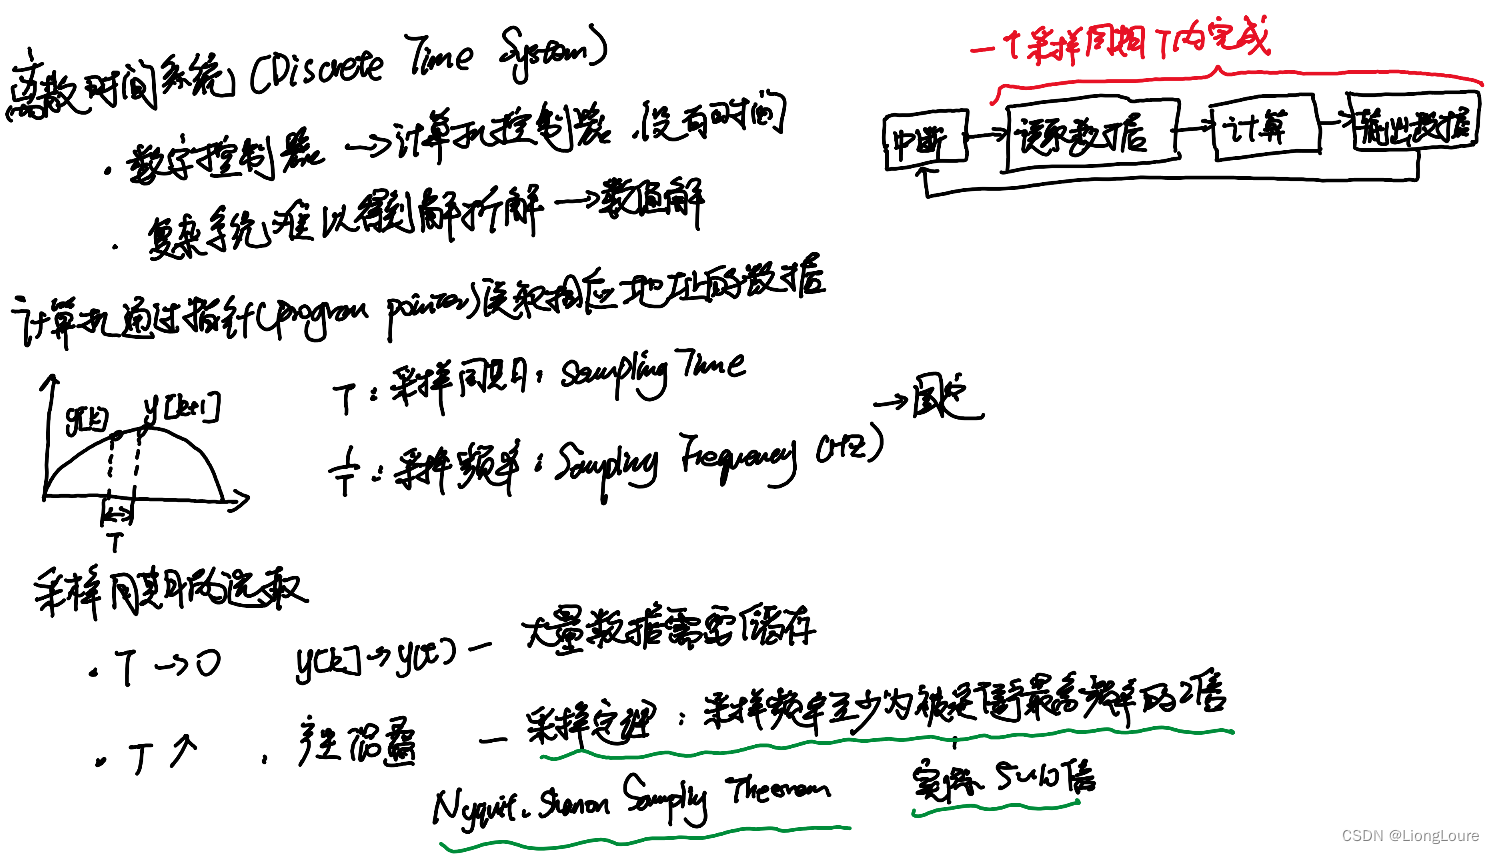 离散时间系统 (Discrete Time System)
一个采样周期T内完成
中断 → 读取数据 → 计算 → 输出数据
· 数字控制器 → 计算机控制器,没有时间
· 复杂系统难以得到解析解 → 数值解
计算机通过指针(program pointer)读取相应地址的数据
y[k] y[k+1]
T
T:采样周期:Sampling Time
1/T:采样频率:Sampling Frequency (HZ)
→ 固定
采样周期的选取
· T → 0 y[k] → y(t) — 大量数据需要储存
· T ↑ . 产生混叠 — 采样定理:采样频率至少为被测信号最高频率的2倍
Nyquit. Shanon Sampling Theoream
实际 5~10倍
CSDN @LiongLoure